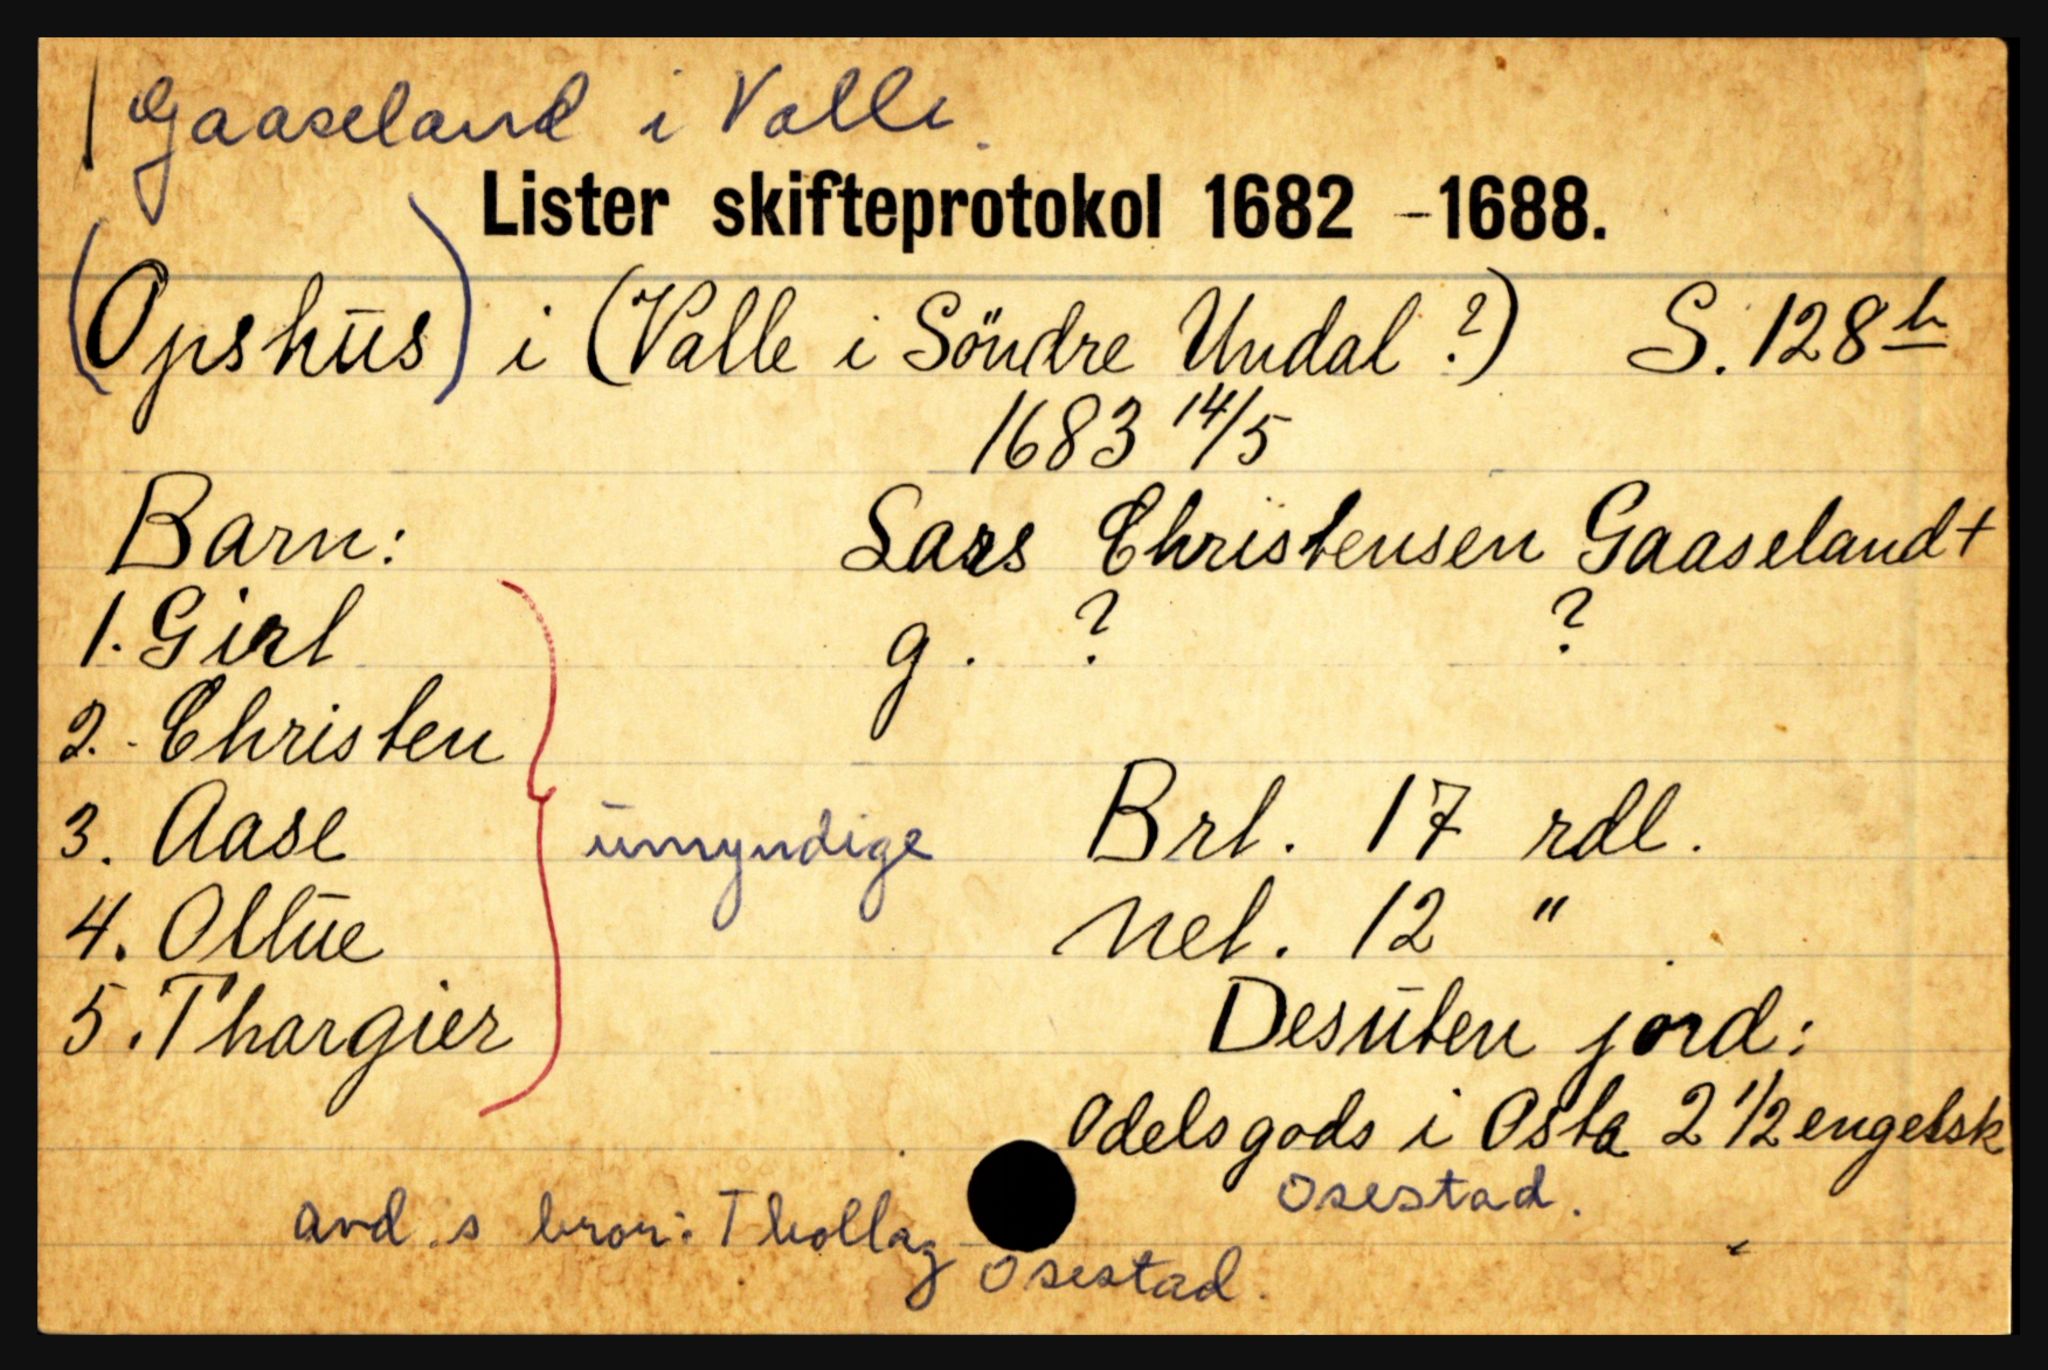 Gaaseland i Valle.
Lister skifteprotokol 1682 -1688.
(Opshus) i (Valle i Söndre Undal ?) S. 128 b
1683 14/5
Barn: Lars Christensen Gaaseland +
1. Girl g. ? ?
2. Christen
3. Aase umyndige Brt. 17 rdl.
4. Ollue Net. 12 "
5. Thargier Desuten jord:
Odelsgods i Osta 2 1/2 engelsk
Osestad.
avd.s bror: Thollag Osestad.